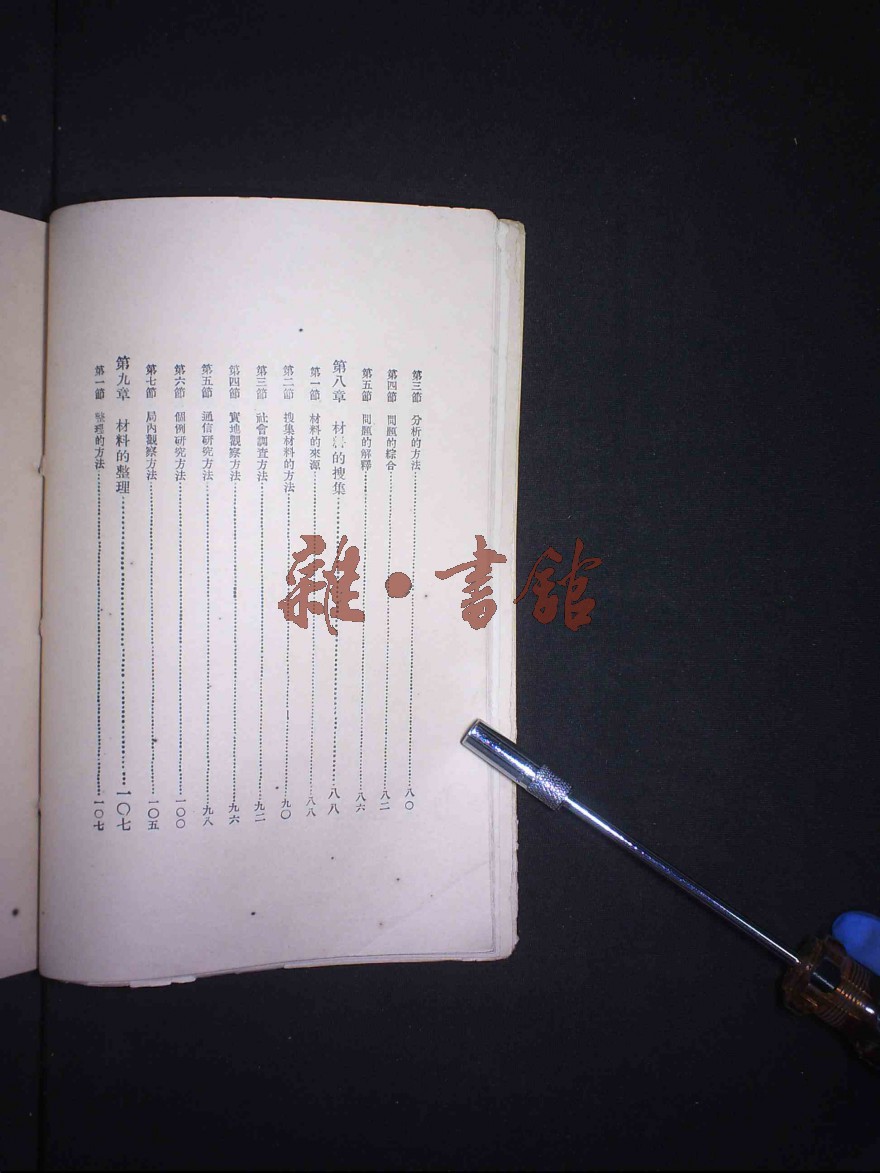 第三節 分析的方法……八〇
第四節 問題的綜合……八二
第五節 問題的解釋……八六
第八章 材料的搜集……八八
第一節 材料的來源……八八
第二節 搜集材料的方法……九〇
第三節 社會調查方法……九二
第四節 實地觀察方法……九六
第五節 通信研究方法……九八
第六節 個例研究方法……一〇〇
第七節 局內觀察方法……一〇五
第九章 材料的整理……一〇七
第一節 整理的方法……一〇七
雜·書館